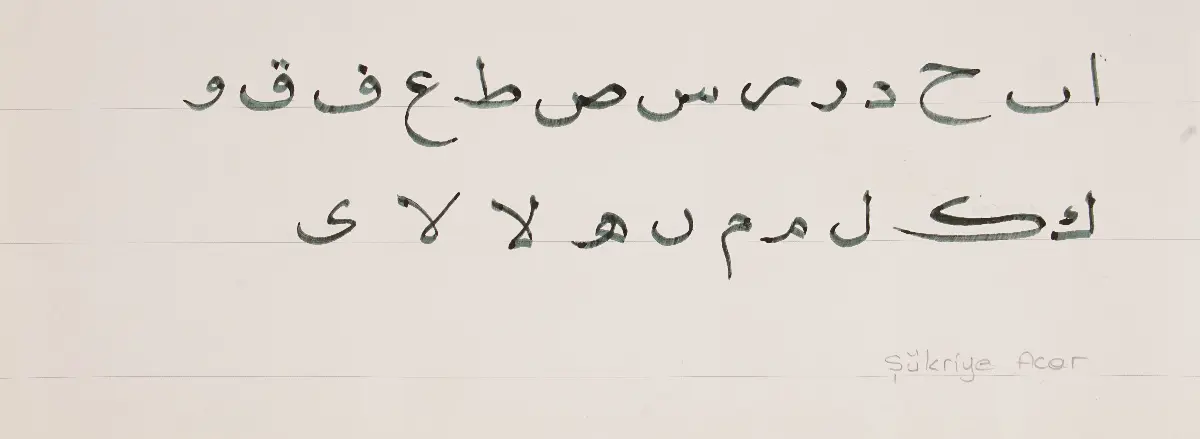 ا ٮ ح د ر ر س ص ط ع ف ق و
ك ک ل م م ں ه لا لا ى
Şükriye Acar